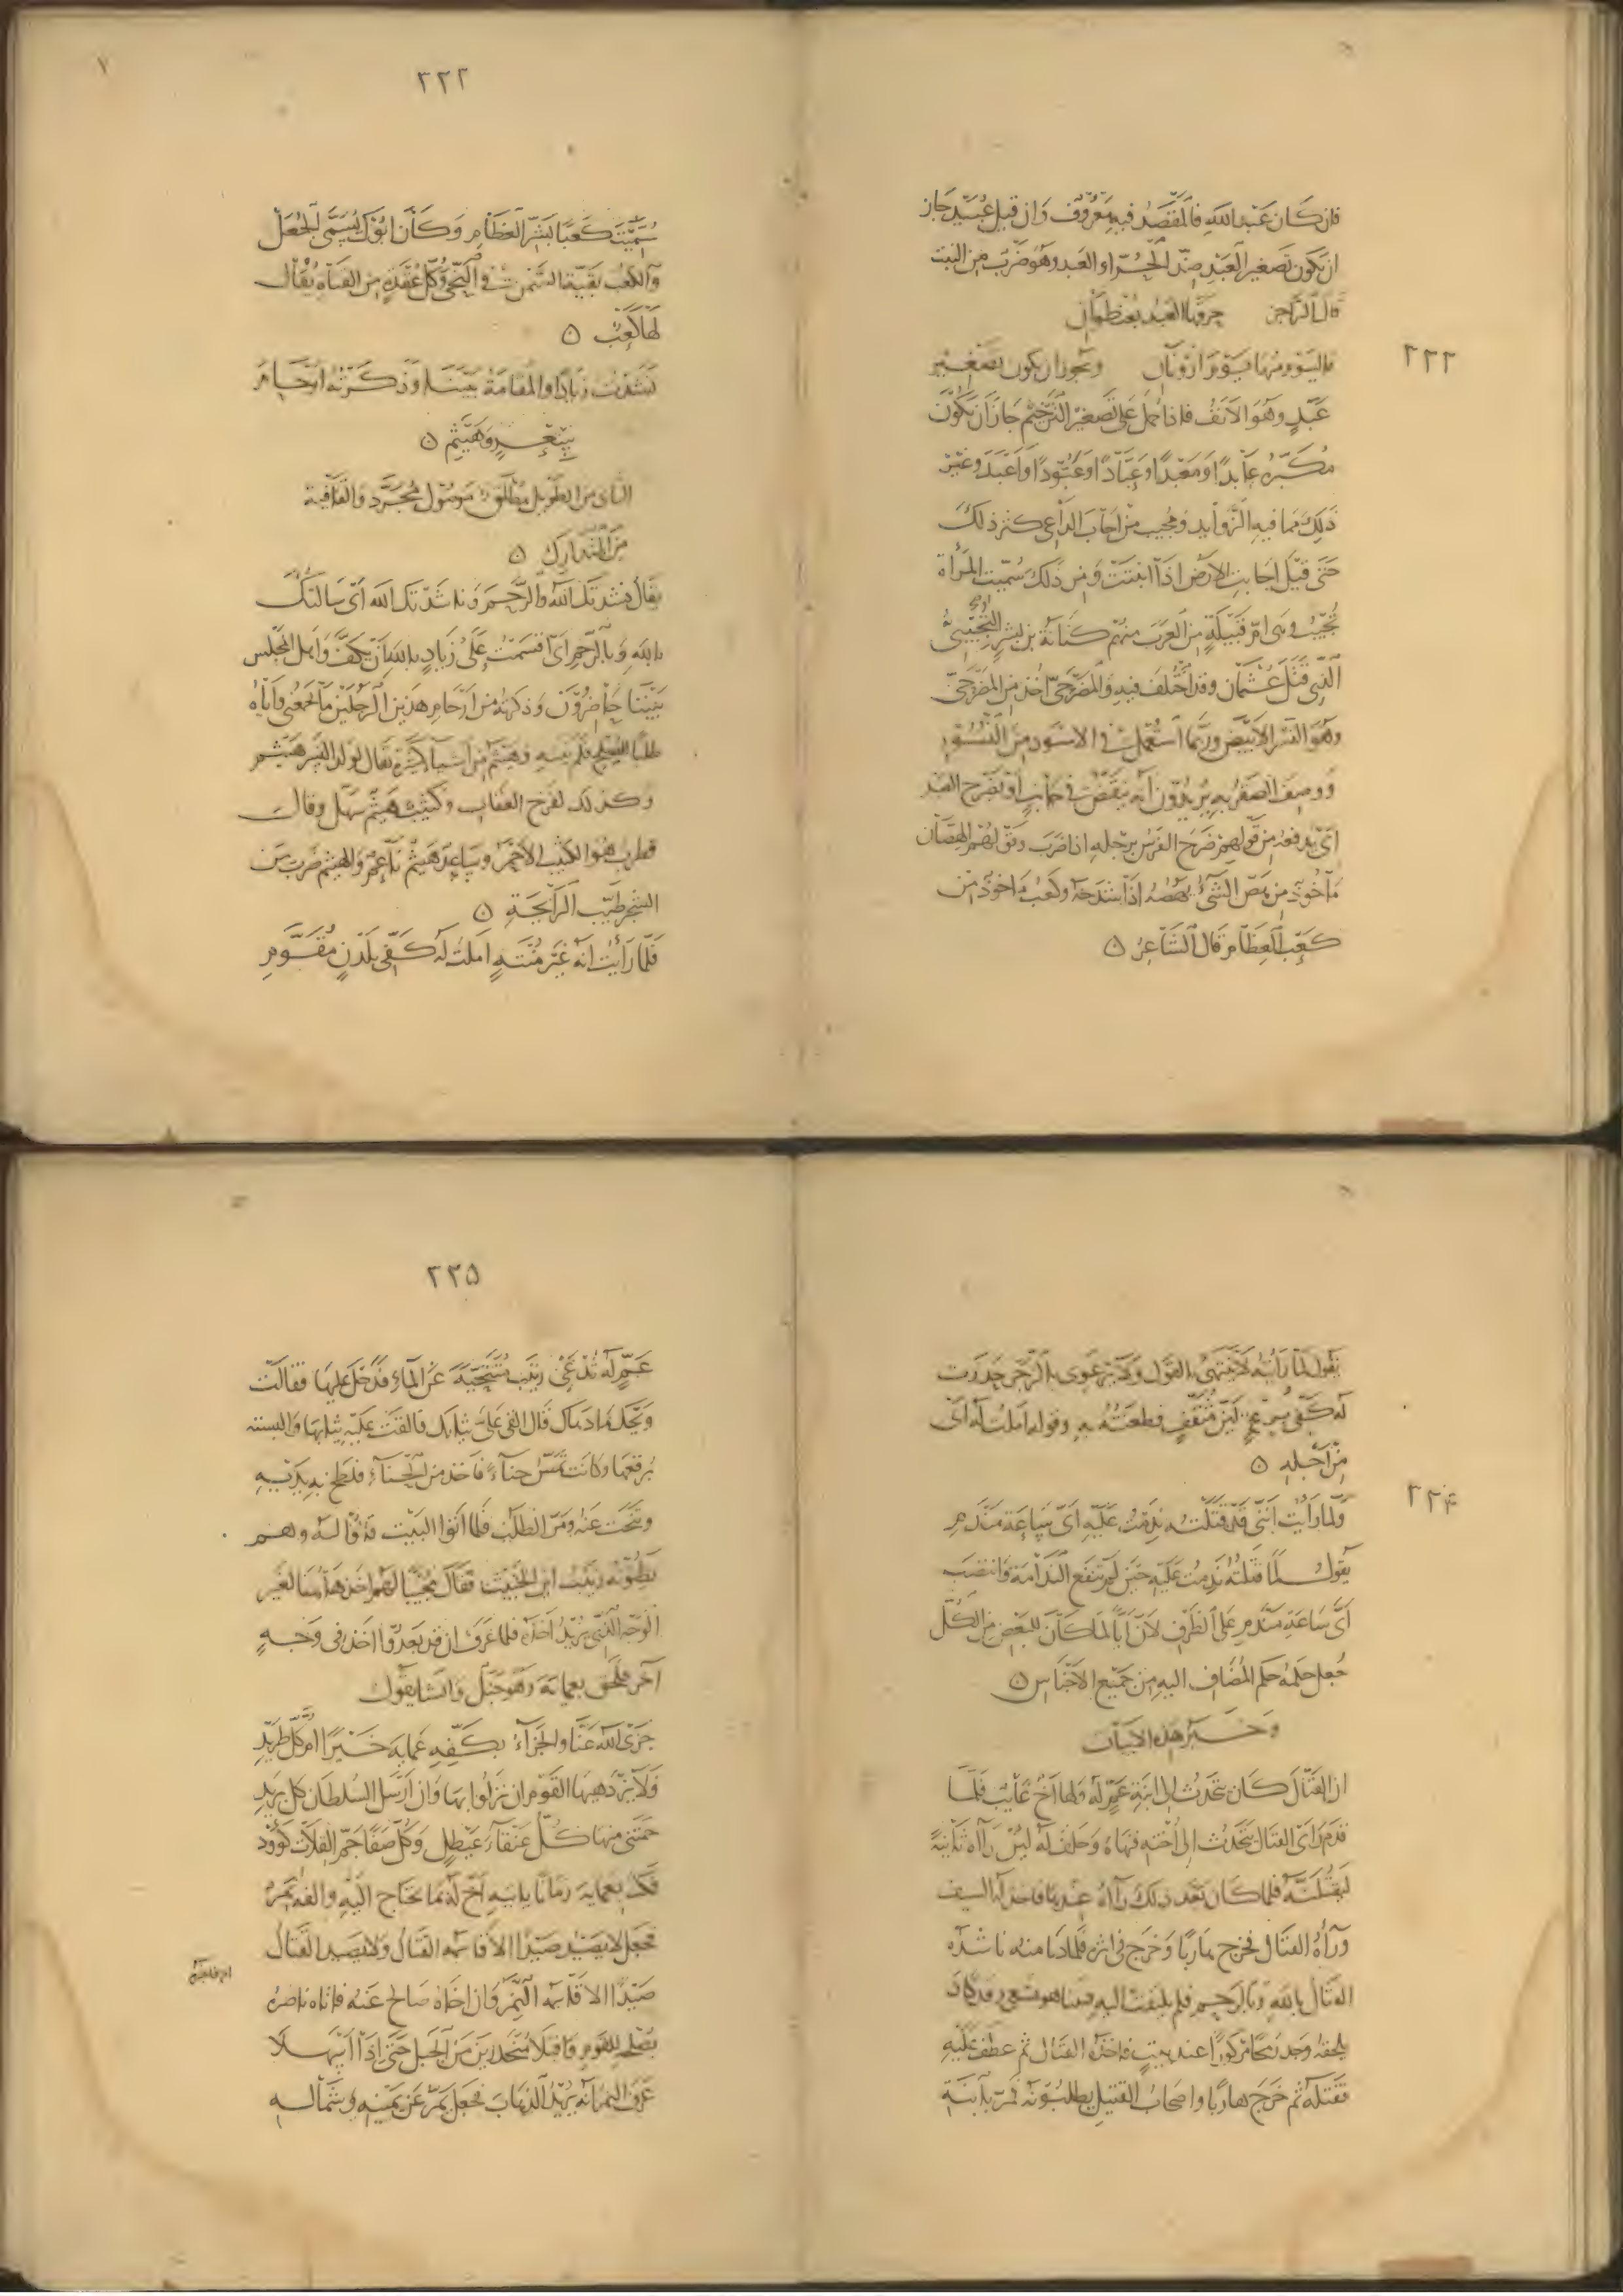 ٢٢٢
فان كان عبد الله فالقصد فيه معروف وان قيل عبيد جاز
ان يكون تصغير العبد ضد الحر او العبد وهو ضرب من النبت
قال الراجز حرقها العبد بعنظوان
فاليوم منها يوم ارونان ويجوز ان يكون تصغير
عبد وهو الانف فاذا حمل على تصغير الترخيم جاز ان يكون
مكبره عابدا او معبدا او عبادا او عبودا او اعبد وغير
ذلك مما فيه الزوايد ومجيب من اجاب الداعي كثر ذلك
حتى قيل اجابت الارض اذا انبتت ومن ذلك سميت المرأة
تجيب وهي ام قبيلة من العرب منهم كنانة بن بشر التجيبي
الذي قتل عثمان وقد اختلف فيه والمضرحي اخذ من المضرحي
وهو النسر الابيض وربما استعملت في الاسود من النسور
ووصف الصقر به يريدون انه ينقض في جانب او يضرح الصيد
اي يدفعه من قولهم ضرح الفرس برجله اذا ضرب وقولهم الهصان
مأخوذ من هص الشيء يهصه اذا شدخه وكعب مأخوذ من
كعب العظام قال الشاعر
٢٢٣
سميت كعبا بشر العظام وكان ابوك يسمى الجعل
والكعب بقية السمن في النحي وكل عقدة من القناة يقال
لها كعب
نشدت زيادا والمقامة بيننا وذكرته ارحام
سعر وهيثم
الثاني من الطويل مطلق موصول مجرد والقافية
من المتدارك
يقال نشدتك الله والرحم وناشدتك الله اي سالتك
بالله وبالرحم اي اقسمت على زياد بالله ان يكف واهل المجلس
بيننا حاضرون وذكرته من ارحام هذين الرجلين ما يجمعني واياه
طلبا للصلح فلم ينته وهيثم من اشيا كثيرة يقال لولد النسر هيثم
وكذلك لفرخ العقاب وكثيب هيثم سهل وقال
قطرب هو الكثيب الاحمر وساعد هيثم ناعم والهيثم ضرب من
الشجر طيب الرايحة
فلما رأيت انه غير منته املت له كفي بلدن مقوم
٢٢٤
يقول لما رأيته لا ينتهي بالقول ولا يرعوي بالرحم حدرت
له كفي برمح لين مثقف فطعنته به وقوله املت له اي
من اجله
ولما رأيت انني قد قتلته ندمت عليه اي ساعة مندم
يقول لما قتلته ندمت عليه حين لم تنفع الندامة وانتصب
اي ساعة مندم على الظرف لان ايا لما كان للبعض من الكل
جعل حكمه حكم المضاف اليه من جميع الاجناس
وخبر هذه الابيات
ان القتال كان يتحدث الى ابنة عم له ولها اخ غايب فلما
قدم رأى القتال يتحدث الى اخته فنهاه وحلف له لئن رآه ثانية
ليقتلنه فلما كان بعد ذلك رآه عندها فاخذ له السيف
ورآه القتال فخرج هاربا وخرج في اثره فلما دنا منه ناشده
القتال بالله وبالرحم فلم يلتفت اليه فبينا هو يسعى وقد كاد
يلحقه وجد رمحا مركوزا عند بيت فاخذه القتال ثم عطف عليه
فقتله ثم خرج هاربا واصحاب القتيل يطلبونه فمر بابنة
٢٢٥
عم له تدعى زينب متنحية عن الماء فدخل عليها فقالت
ويحك ما دهاك قال القي علي ثيابك فالقت عليه ثيابها والبسته
برقعها وكانت تمس حناء فاخذ من الحناء فلطخ به يديه
وتنحت عنه ومر الطلب فلما اتوا البيت قالوا له وهم
يظنونه زينب اين الخبيث فقال مجيبا لهم اخذ هاهنا لغير
الوجه الذي يريد اخذه فلما عرف ان قد بعدوا اخذ في وجه
آخر فلحق بعماية وهو جبل وانشا يقول
جزى الله عنا والجزآء بكفه عماية خيرا ام كل طريد
فلا يزدهيها القوم ان نزلوا بها وان ارسل السلطان كل بريد
حمتني منها كل عنقآء عيطل وكل صفا جم القلات كؤود
فمكث بعماية زمانا ياتيه اخ له بما يحتاج اليه والفه نمر
فجعل لا يصيد صيدا الا قاسمه القتال ولا يصيد القتال
صيدا الا قاسمه النمر وان اخاه صالح عنه فاتاه ناصره
بصلح القوم فاقبلا منحدرين من الجبل حتى اذا اسهلا
عرف النمر انه يريد الذهاب فجعل يمر عن يمينه وشماله